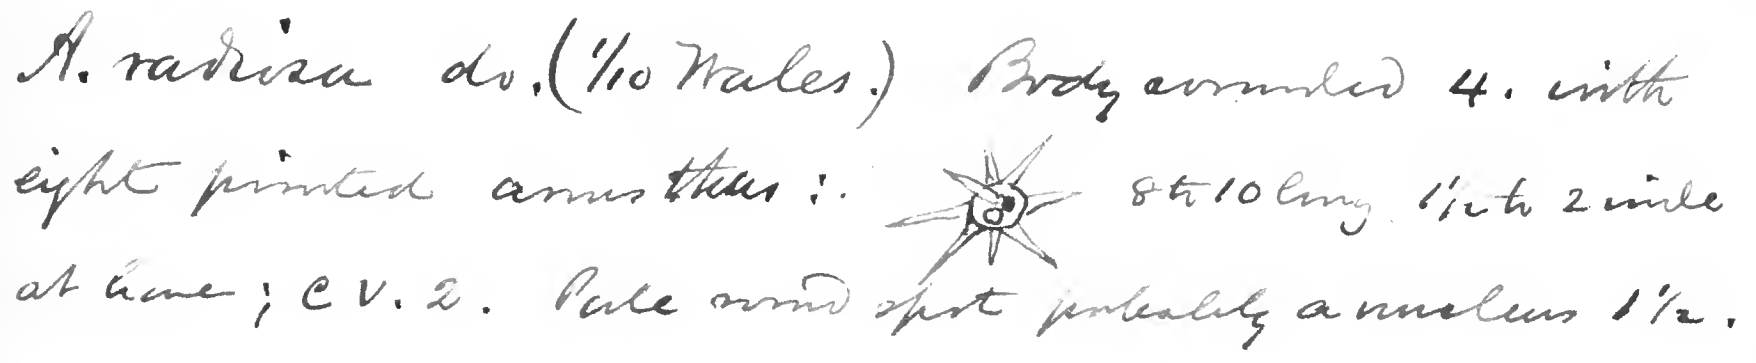 A. radiosa do. (1/10 Wales.) Body rounded 4. with
eight pointed arms thus :. 8 to 10 long 1 1/2 to 2 wide
at base; C V. 2. Pale round spot probably a nucleus 1 1/2.